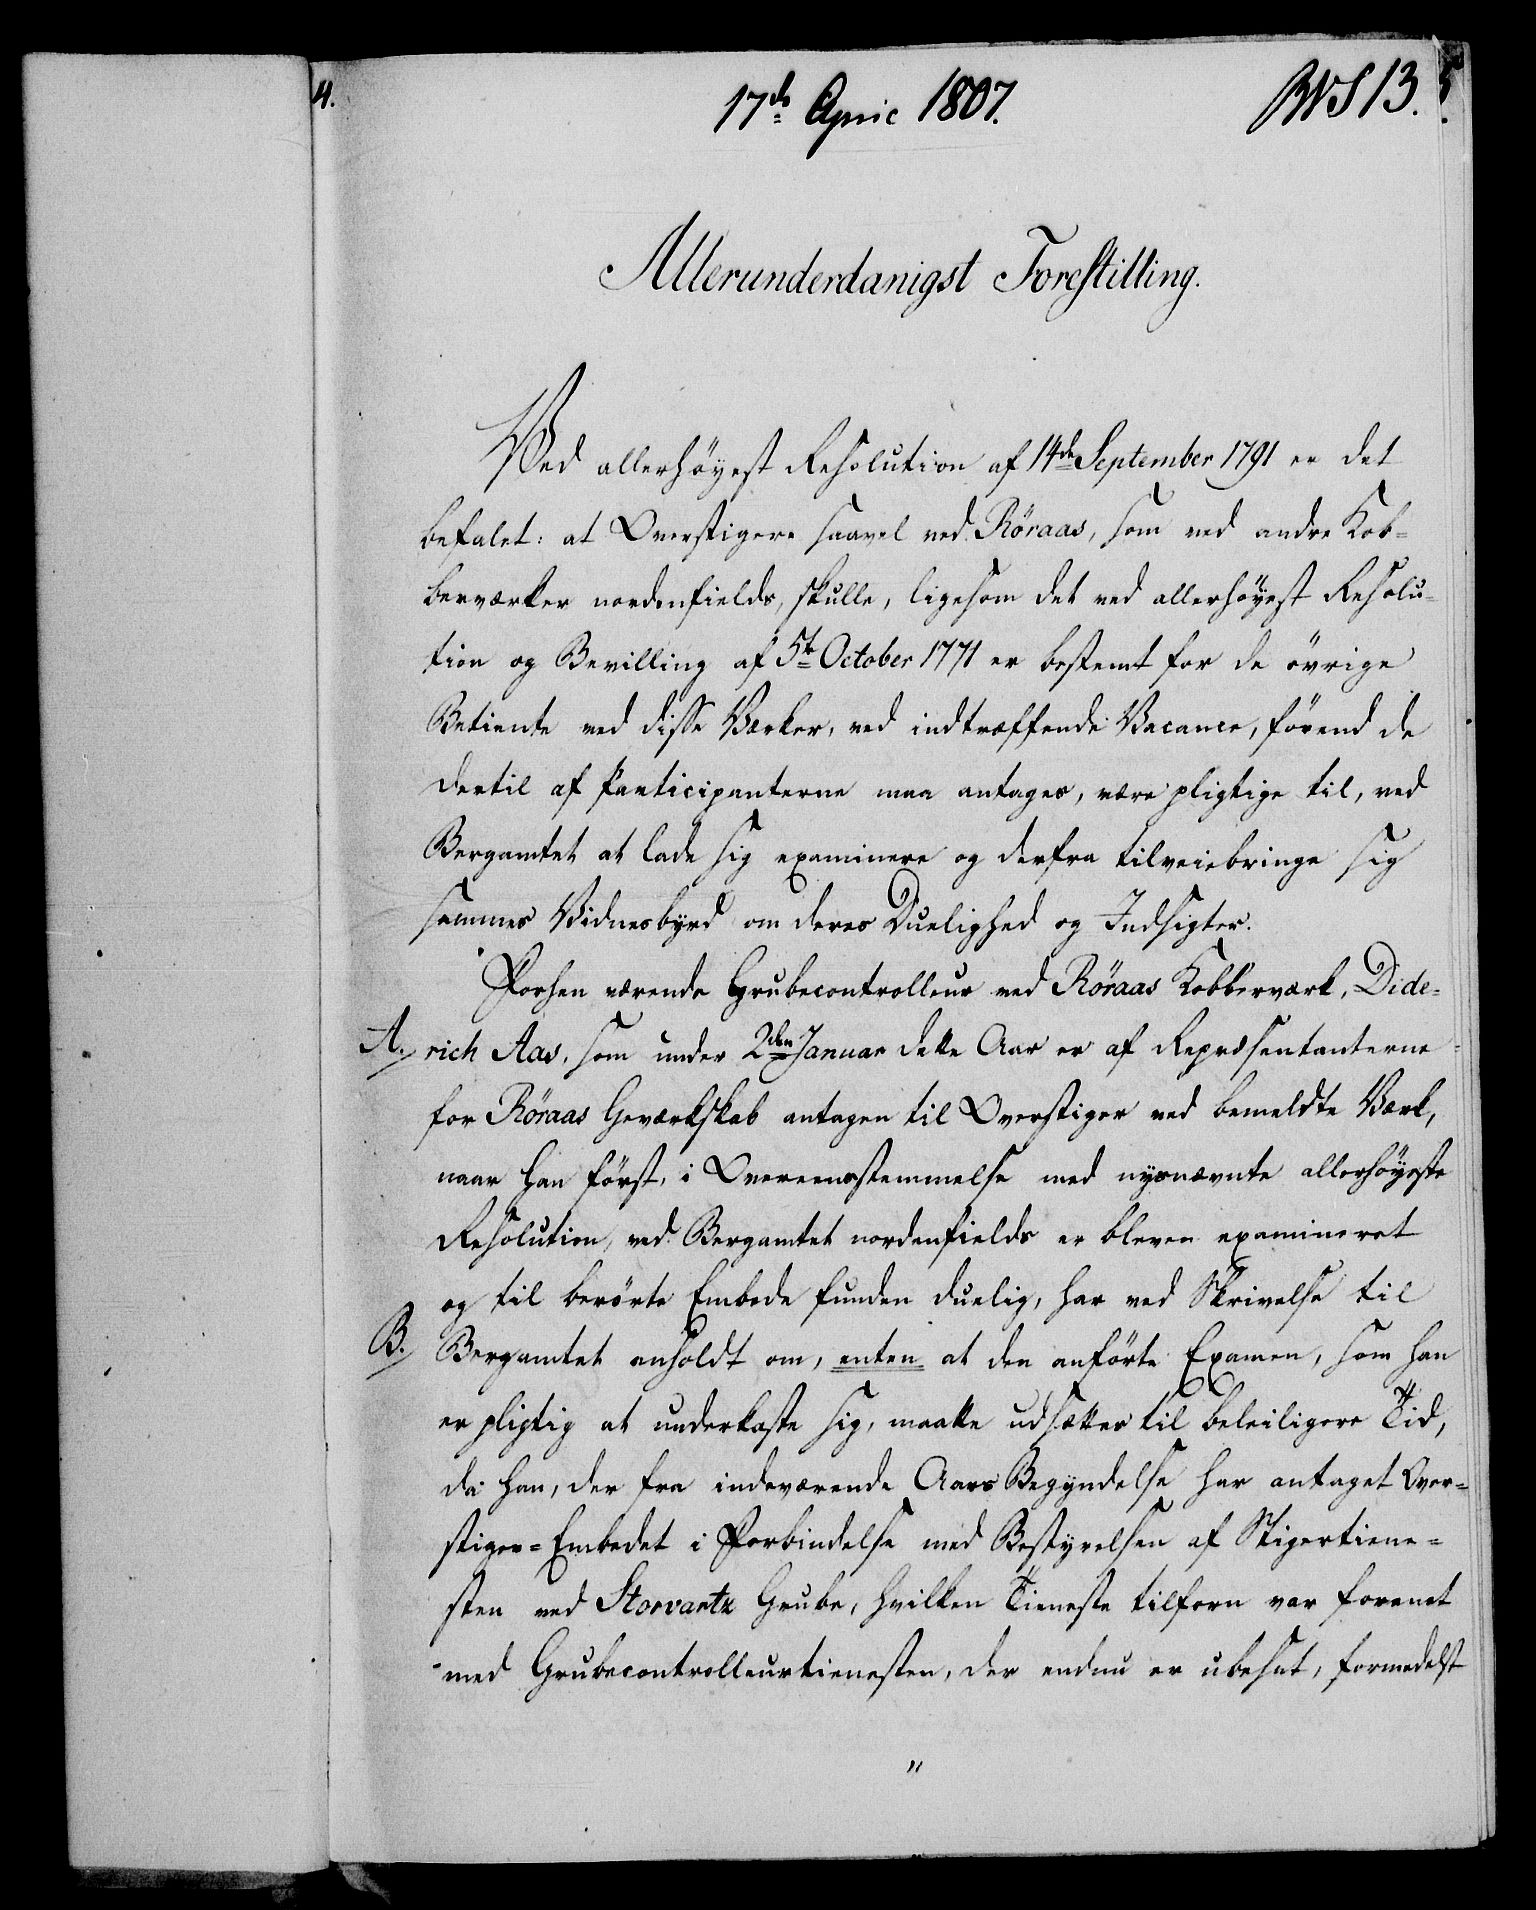 4.
17de April 1807.
BVS 13.
Allerunderdanigst Forestilling.
Ved allerhöyest Resolution af 14de September 1791 er det
befalet: at Overstigere saavel ved Röraas, som ved andre Kob-
berværker nordenfields, skulle, ligesom det ved allerhöyest Resolu-
tion og Bevilling af 5te October 1771 er bestemt for de övrige
Betiente ved disse Værker, ved indtræffende Vacance, förend de
dertil af Participanterne maa antages, være pligtige til, ved
Bergamtet at lade sig examinere og derfra tilveiebringe sig
sammes Vidnesbyrd om deres Duelighed og Indsigter.
Forhen værende Grubecontrolleur ved Röraas Kobberværk, Dide-
A. rich Aas, som under 2den Januar dette Aar er af Repræsentanterne
for Röraas Geværkskab antagen til Overstiger ved bemeldte Værk,
naar han först, i Overeensstemmelse med nysnævnte allerhöyeste
Resolution, ved Bergamtet nordenfields er bleven examineret
og til berörte Embede funden duelig, har ved Skrivelse til
B. Bergamtet anholdt om, enten at den anförte Examen, som han
er pligtig at underkaste sig, maatte udsættes til beleiligere Tid,
da han, der fra indeværende Aars Begyndelse har antaget Over-
stiger-Embedet i Forbindelse med Bestyrelsen af Stigertiene-
sten ved Storvartz Grube, hvilken Tieneste tilforn var forenet
med Grubecontrolleurtienesten, der endnu er ubesat, formedelst
"